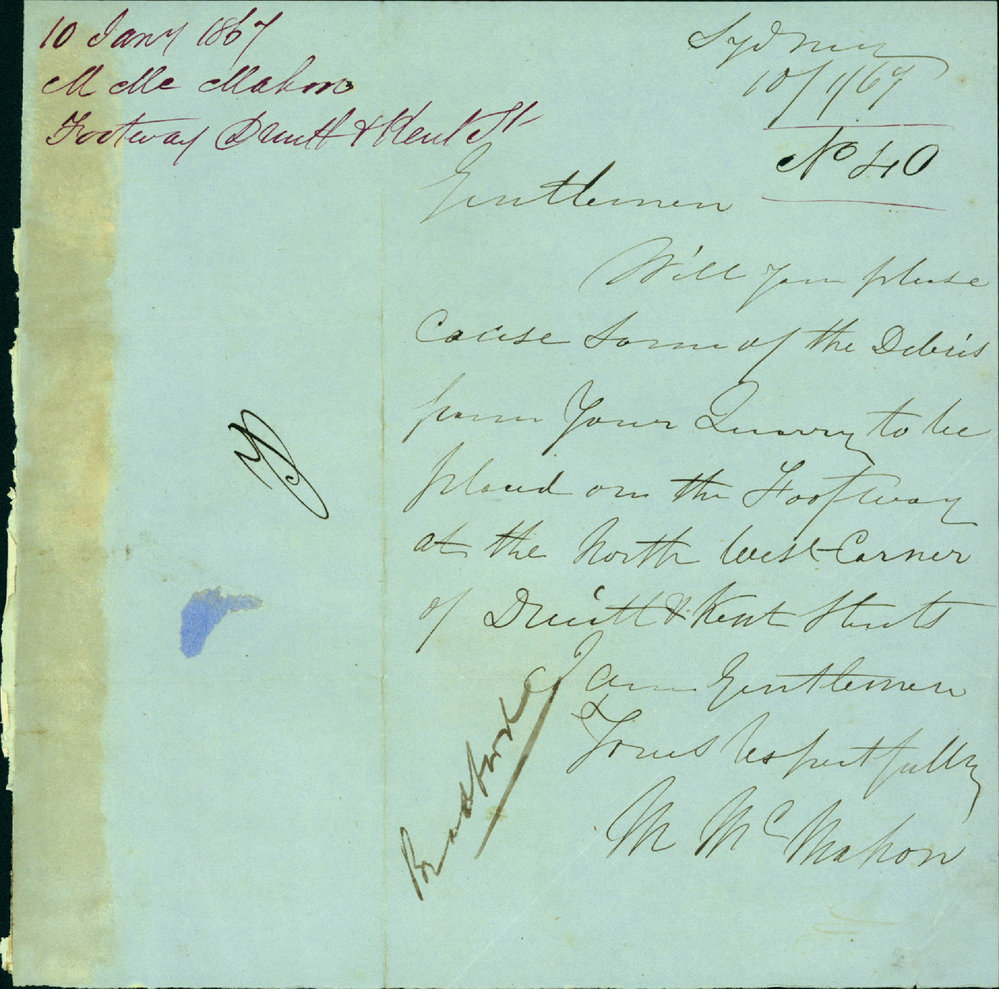 10 Jany 1867
M Mc Mahon
Footway Druitt & Kent St
Sydney
10/1/67
No 40
Gentlemen
Will you please
cause some of the Debris
from Your Quarry to be
placed on the Footway
at the North West Corner
of Druitt & Kent Streets
I am Gentlemen
Yours respectfully
M McMahon
Bradford